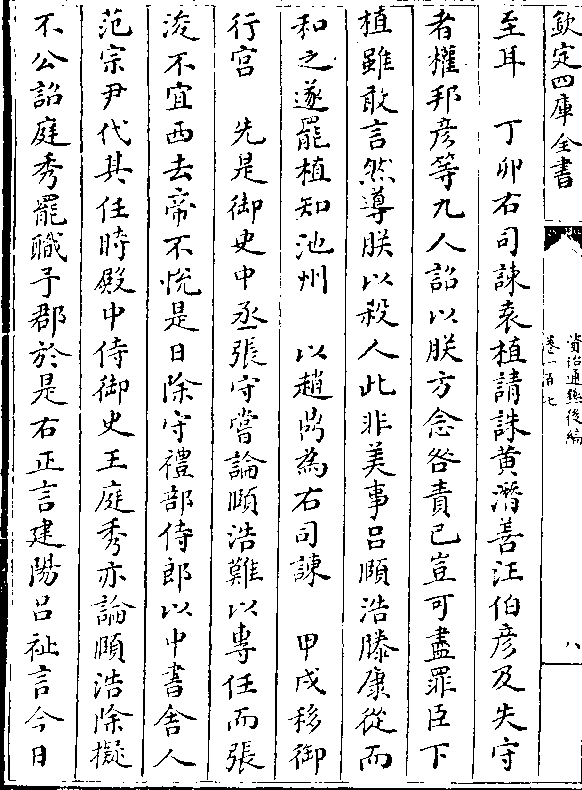 欽定四庫全書
資治通鑑後編
卷一百七
八
至耳　丁卯右司諫袁植請誅黃潛善汪伯彥及失守
者權邦彥等九人詔以朕方念咎責已豈可盡罪臣下
植雖敢言然導朕以殺人此非美事吕頤浩滕康從而
和之遂罷植知池州　以趙鼎為右司諫　甲戌移御
行宫　先是御史中丞張守嘗論頤浩難以専任而張
浚不宜西去帝不悅是日除守禮部侍郎以中書舍人
范宗尹代其任時殿中侍御史王庭秀亦論頤浩除擬
不公詔庭秀罷職予郡於是右正言建陽吕祉言今日